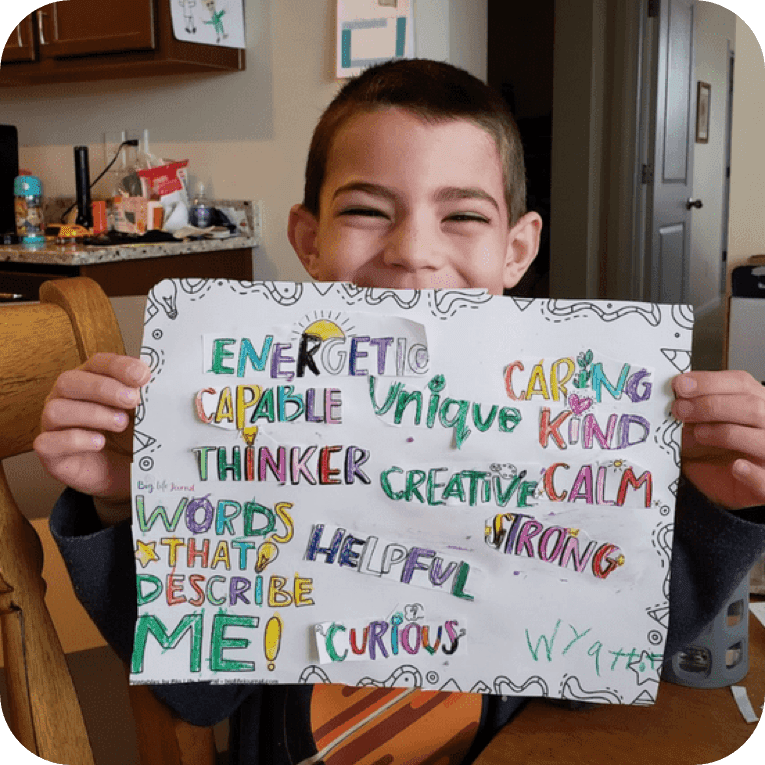 ENERGETIC
CARING
CAPABLE
Unique
KIND
THINKER
CREATIVE
CALM
Big Life Journal
WORDS
THAT
DESCRIBE
ME!
HELPFUL
STRONG
CURIOUS
Wyatt
Printables by Big Life Journal - biglifejournal.com